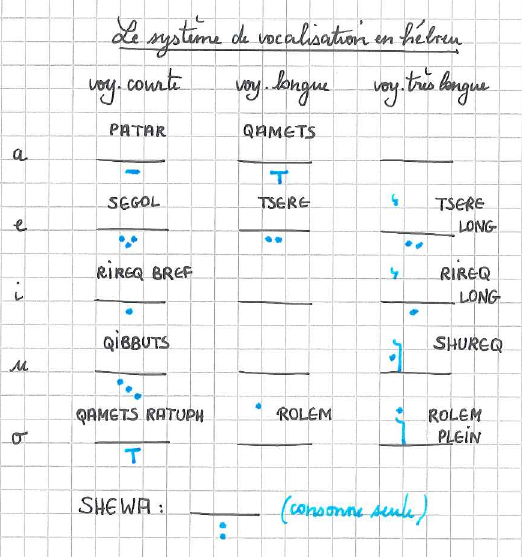 Le système de vocalisation en hébreu
voy. courte voy. longue voy. très longue
PATAR QAMETS
a
SEGOL TSERE TSERE
e LONG
RIREQ BREF RIREQ
i LONG
QIBBUTS SHUREQ
u
QAMETS RATUPH ROLEM ROLEM
o PLEIN
SHEWA : (consonne seule)